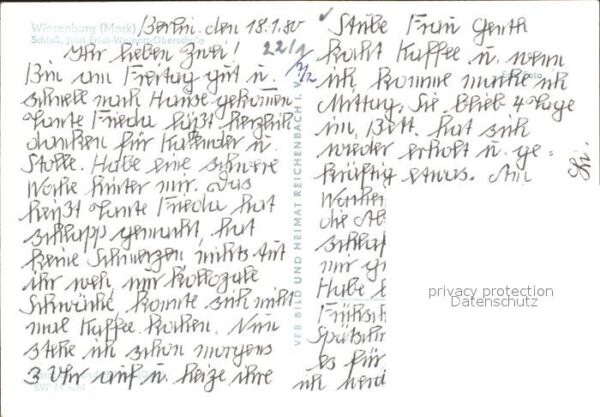 Wiesenburg (Mark)
Schloß, jetzt Erich-Weinert-Oberschule
Berlin, den 18.1.80
Ihr lieben Zwei!
22/1
Bin am Freitag gut u.
schnell nach Hause gekommen
Tante Frieda läßt herzlich
danken für Kalender u.
Stolle. Habe eine schwere
Woche hinter mir. Das
heißt Tante Frieda hat
schlapp gemacht, hat
keine Schmerzen nichts tut
ihr weh, nur kollozale
Schwäche, konnte sich nicht
mal Kaffee kochen. Nun
stehe ich schon morgens
3 Uhr auf u. heize ihre
VEB BILD UND HEIMAT REICHENBACH I. V.
Stube Frau Genth
kocht Kaffee u. wenn
ich komme mache ich
Mittag. Sie blieb 4 Tage
im Bett. hat sich
wieder erholt u. ge-
kräftig etwas. Am
Wochen
die Ab
schlaf
mir g
Habe
Frühsch
Spätschi
es für
ich werd
privacy protection
Datenschutz